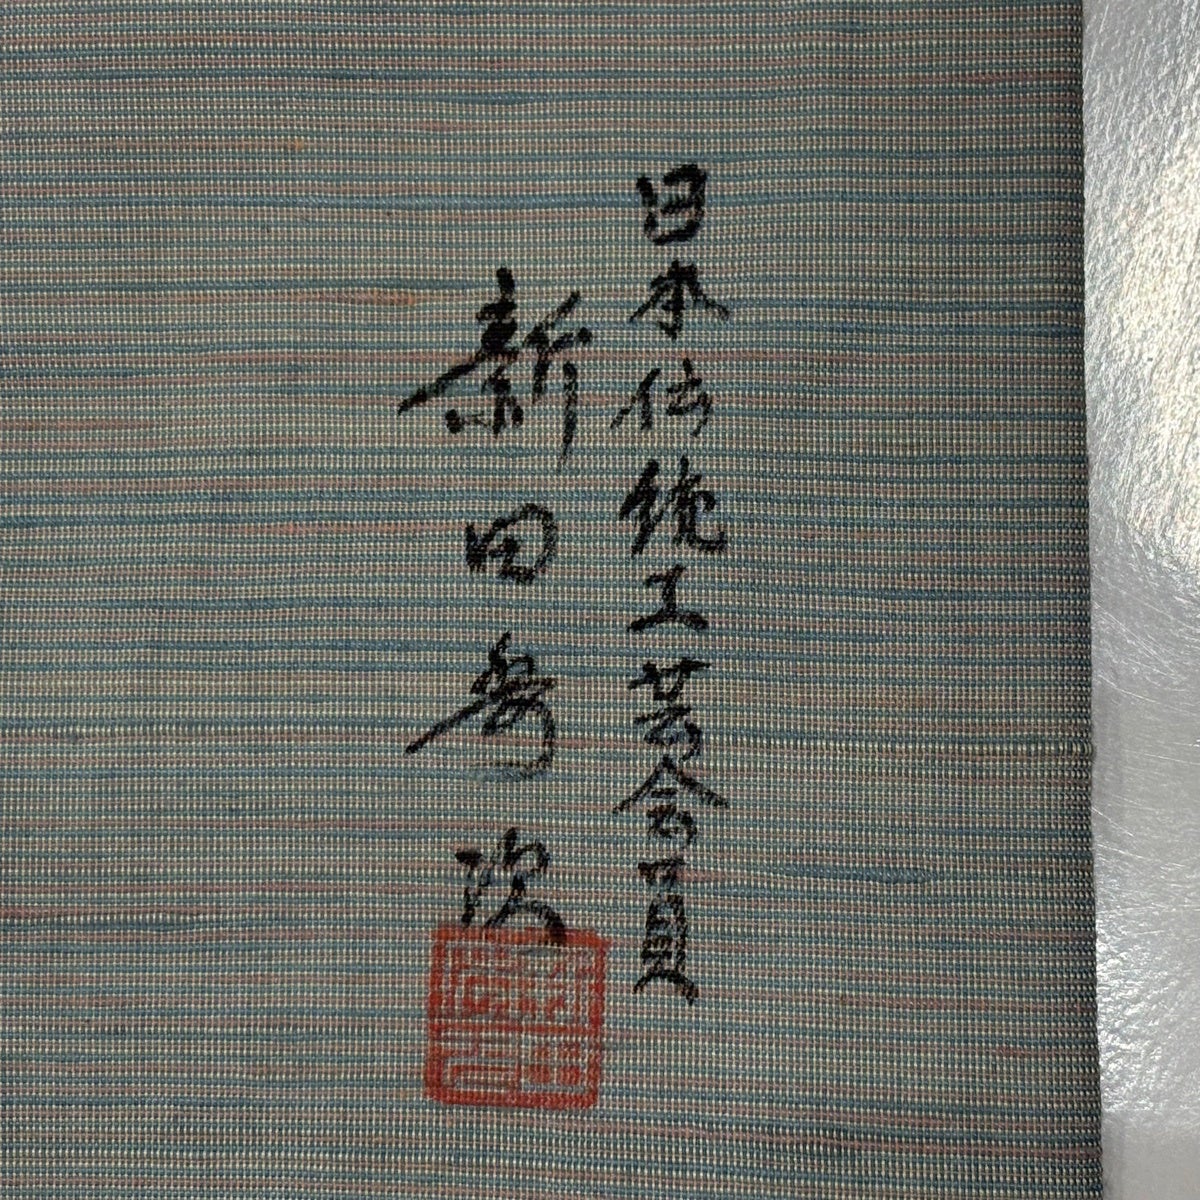 日本伝統工芸会員
新田秀次